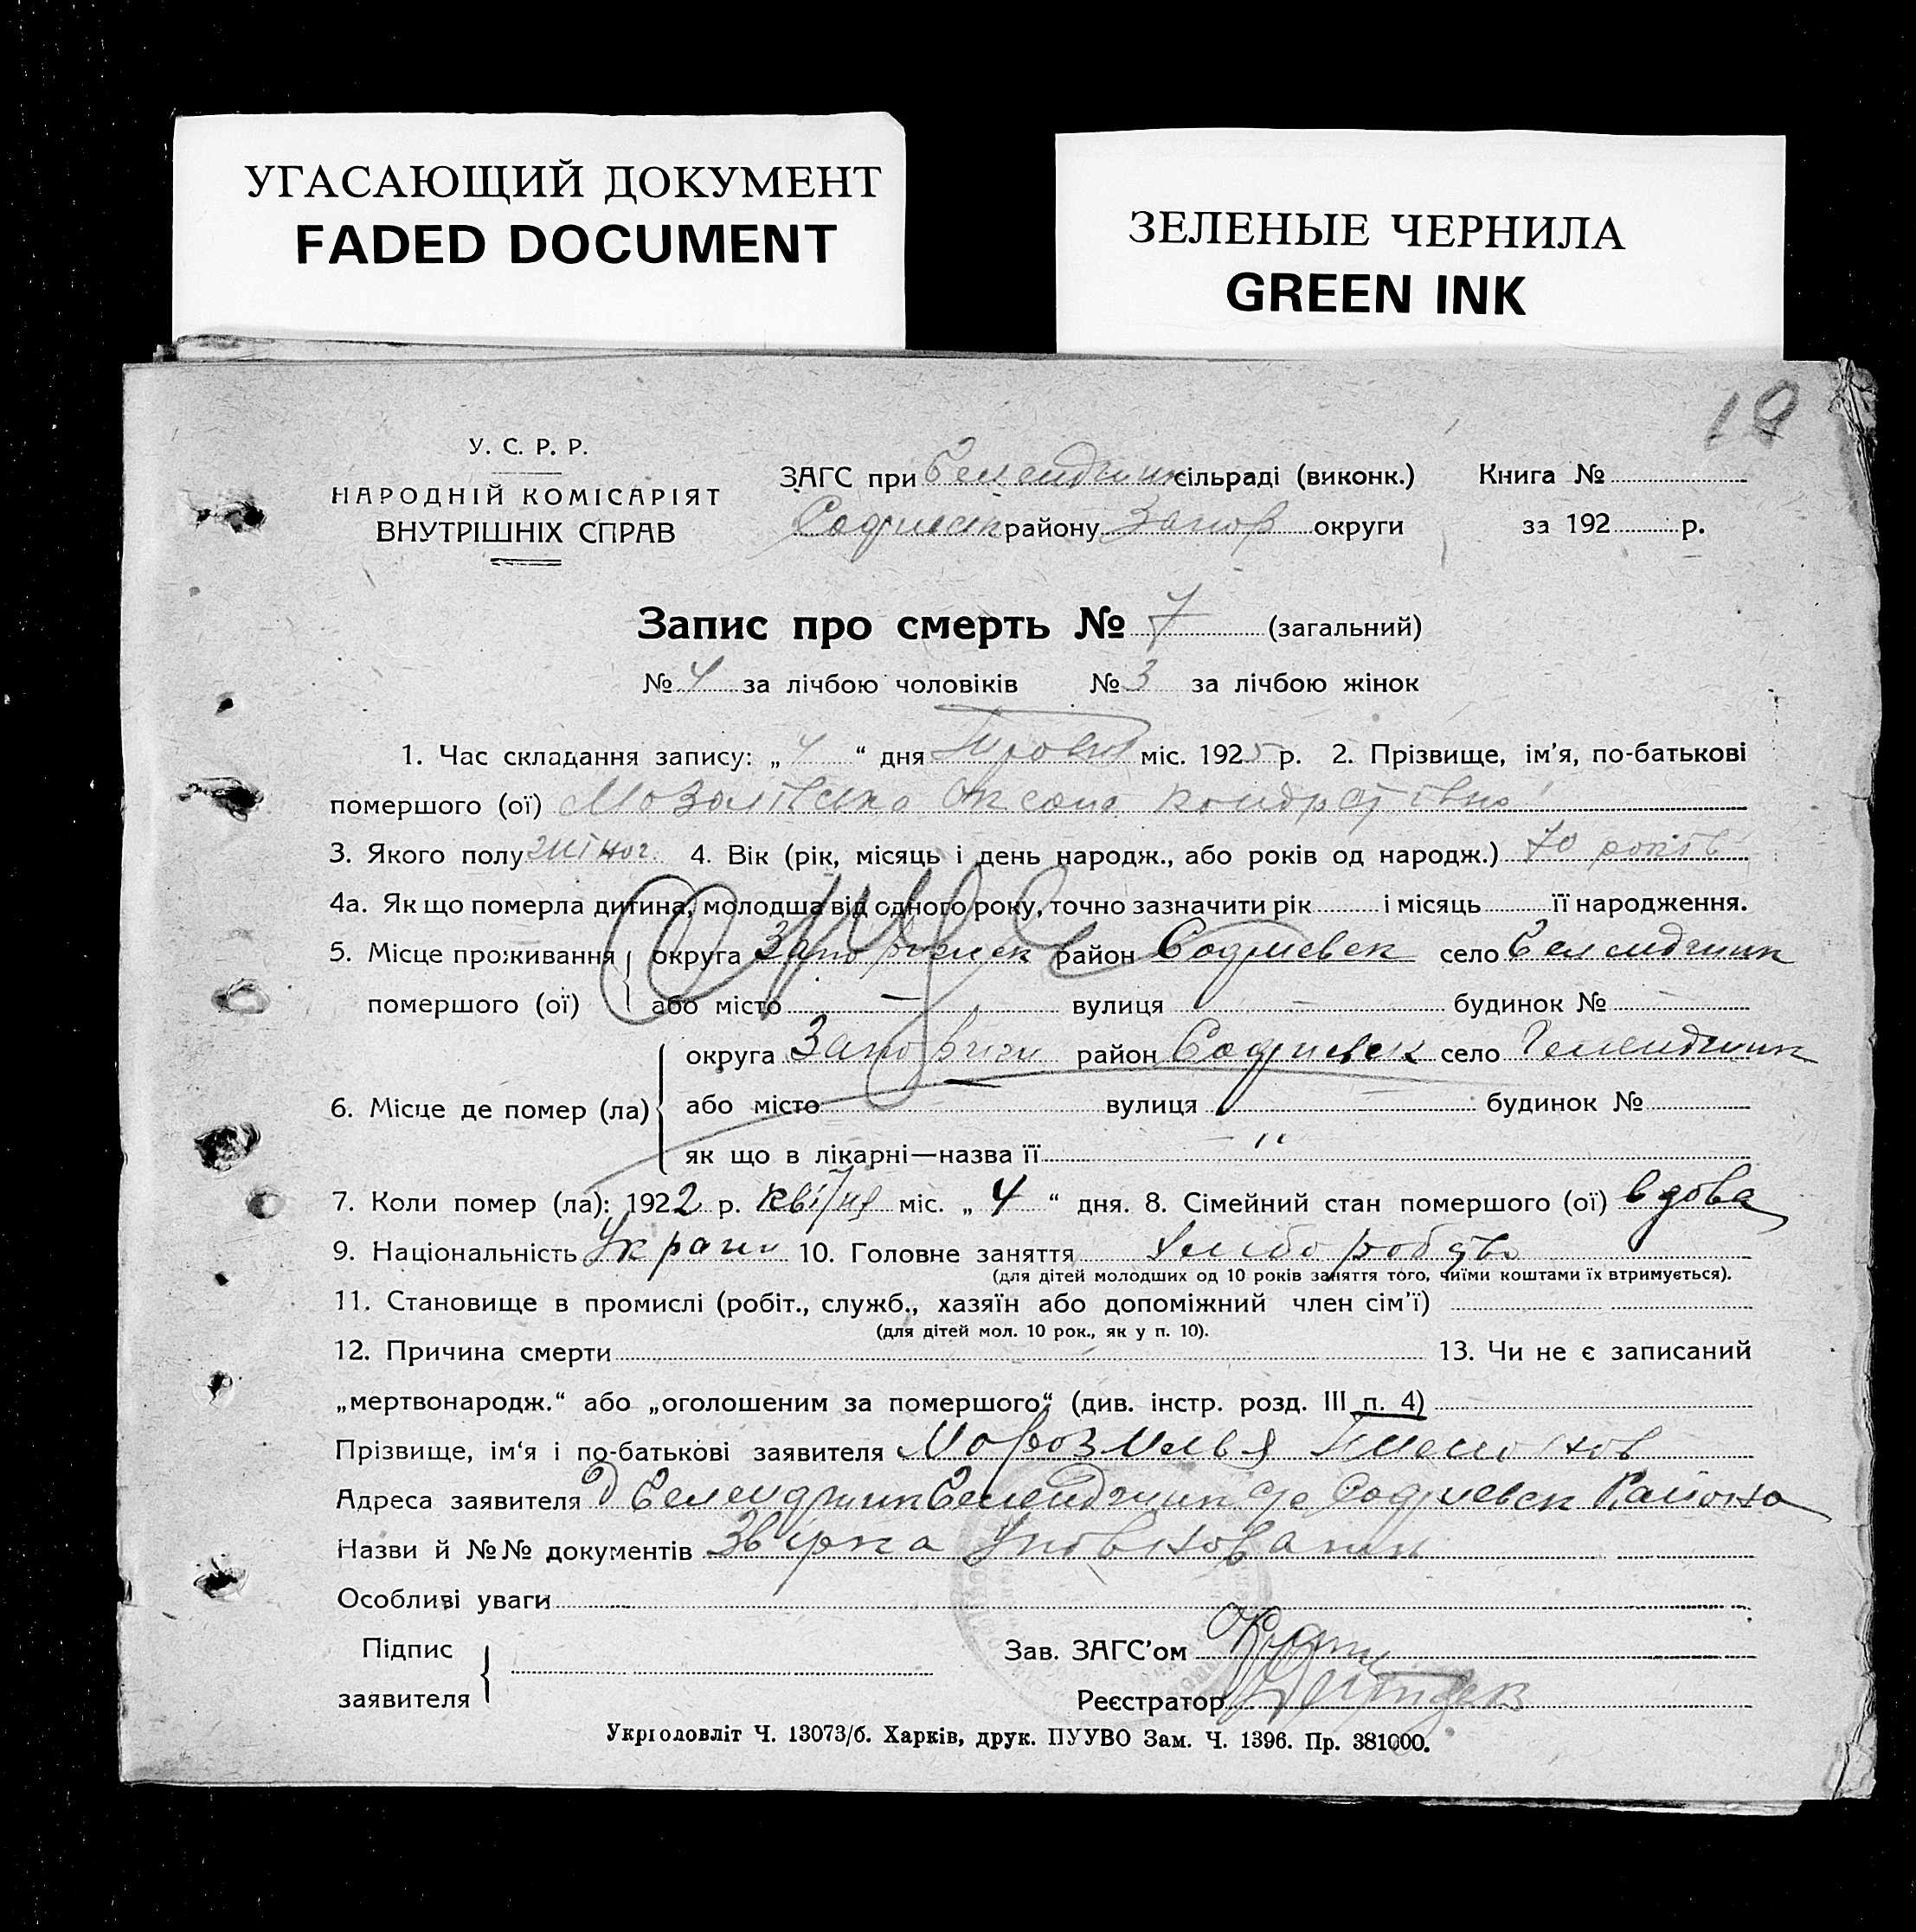 УГАСАЮЩИЙ ДОКУМЕНТ
FADED DOCUMENT
ЗЕЛЕНЫЕ ЧЕРНИЛА
GREEN INK
У. С. Р. Р.
НАРОДНІЙ КОМІСАРІЯТ
ВНУТРІШНІХ СПРАВ
ЗАГС при сільраді (виконк.) Книга №
району Запор округи за 192 р.
Запис про смерть № 7 (загальний)
№ 4 за лічбою чоловіків № 3 за лічбою жінок
1. Час складання запису: „ 4 “ дня міс. 1925 р. 2. Прізвище, ім’я, по-батькові
помершого (ої) Оксана Кондратівна
3. Якого полу жіноч. 4. Вік (рік, місяць і день народж., або років од народж.) 70 років
4а. Як що померла дитина, молодша від одного року, точно зазначити рік і місяць її народження.
5. Місце проживання округа район Софиевск село
помершого (ої) або місто — вулиця — будинок № —
округа район Софиевск село
6. Місце де помер (ла) або місто вулиця будинок №
як що в лікарні—назва її
7. Коли помер (ла): 1922 р. міс. „ 4 “ дня. 8. Сімейний стан помершого (ої) вдова
9. Національність 10. Головне заняття
(для дітей молодших од 10 років заняття того, чиїми коштами їх втримується).
11. Становище в промислі (робіт., служб., хазяїн або допоміжний член сім’ї)
(для дітей мол. 10 рок., як у п. 10).
12. Причина смерти 13. Чи не є записаний
„мертвонародж.“ або „оголошеним за помершого“ (див. інстр. розд. III п. 4)
Прізвище, ім‘я і по-батькові заявителя Мороз Илья
Адреса заявителя Софиевск Района
Назви й №№ документів Звірка
Особливі уваги
Підпис
заявителя
Зав. ЗАГС’ом
Реєстратор
Укрголовліт Ч. 13073/б. Харків, друк. ПУУВО Зам. Ч. 1396. Пр. 381000.